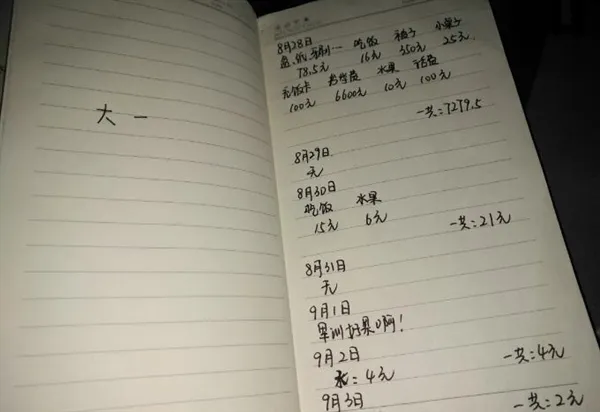 大一
8月28日
盆、纸、牙刷… 吃饭 柚子 小桌子
78.5元 16元 350元 25元
充饭卡 水果 话费
100元 6600元 10元 100元
一共:7279.5
8月29日
无
8月30日
吃饭 水果
15元 6元
一共:21元
8月31日
无
9月1日
军训好累啊!
9月2日
一共:4元
水:4元
9月3日
一共:2元